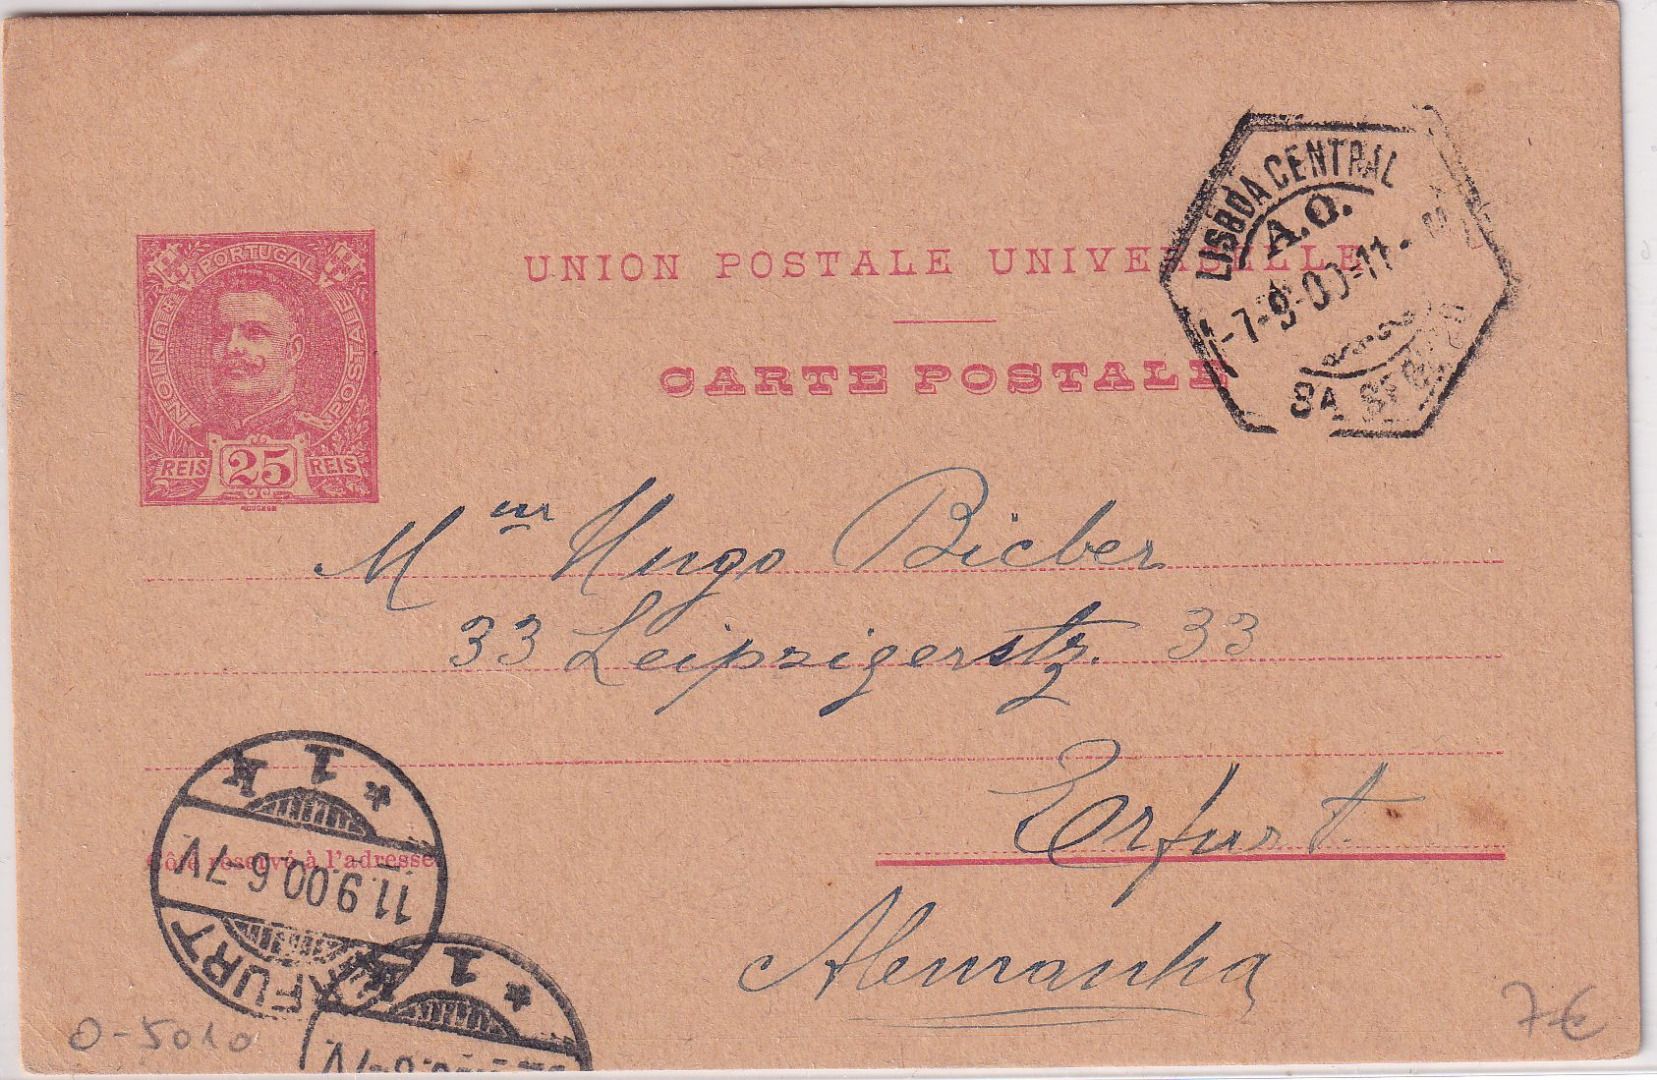 PORTUGAL
UNION POSTALE
REIS 25 REIS
UNION POSTALE UNIVERSELLE
CARTE POSTALE
LISBOA CENTRAL
A.O.
-7-9-00-11-
Meur Hugo Bieber
33 Leipzigerstz. 33
Erfurt.
Alemanha
Côté réservé à l'adresse
* 1 k
11.9.00.6-7V
ERFURT
* 1 k
6-7V
0-5010
7€